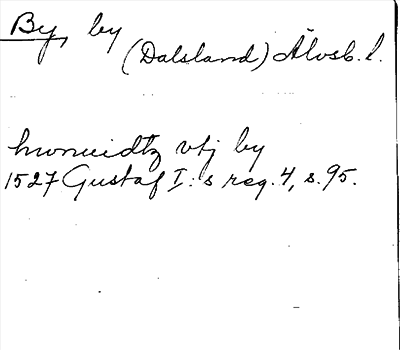 By, by
(Dalsland) Älvsb. l.
hwnuidtz vtj by
1527 Gustaf I:s reg. 4, s. 95.